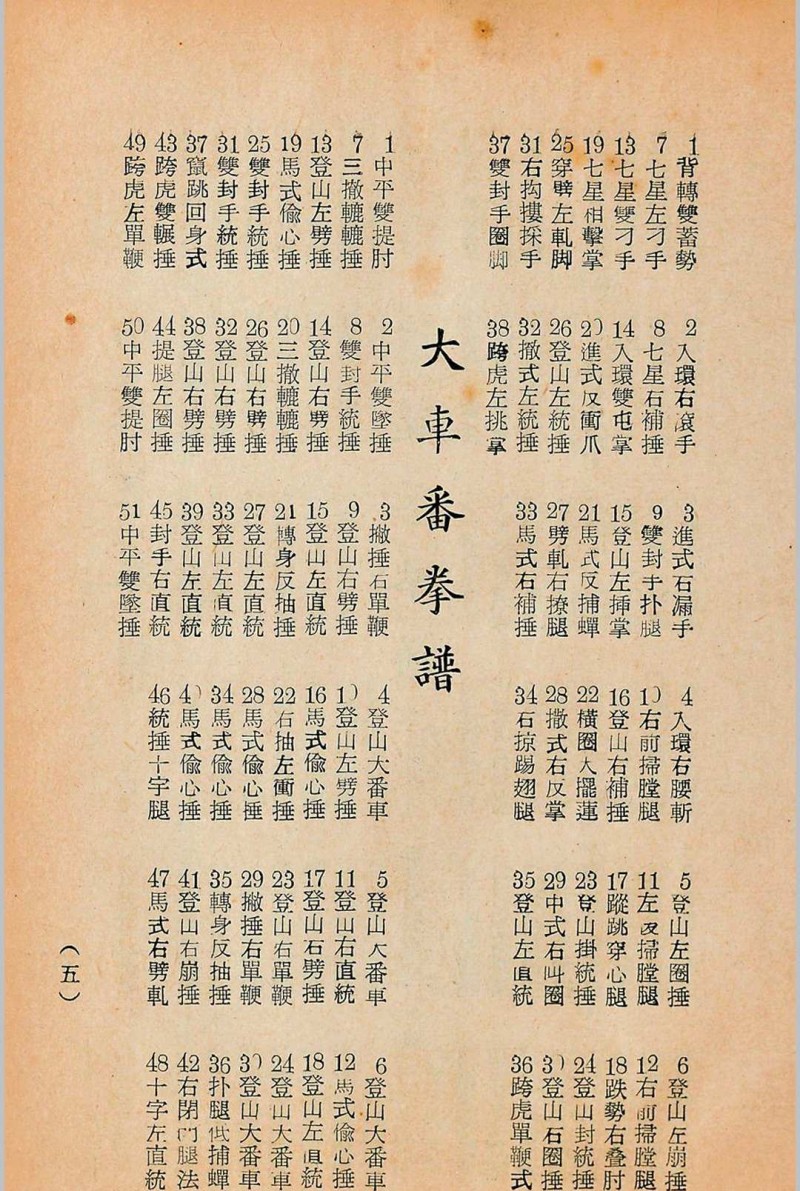 1背轉雙蓄勢 2入環右滾手 3進式右漏手 4入環右腰斬 5登山左圈捶 6登山左崩捶
7七星左刁手 8七星右補捶 9雙封手扑腿 10右前掃膛腿 11左反掃膛腿 12右前掃膛腿
13七星雙刁手 14入環雙屯掌 15登山左揷掌 16登山右補捶 17蹤跳穿心腿 18跌勢右叠肘
19七星相擊掌 20進式反衝爪 21馬式反捕蟬 22橫圈大擺蓮 23登山掛統捶 24登山封統捶
25穿劈左軋脚 26登山左統捶 27劈軋右撩腿 28撤式右反掌 29中式右叫圈 30登山右圈捶
31右抅摟採手 32撤式左統捶 33馬式右補捶 34右掠踢翅腿 35登山左直統 36跨虎單鞭式
37雙封手圈脚 38跨虎左挑掌
大車番拳譜
1中平雙提肘 2中平雙墜捶 3撤捶右單鞭 4登山大番車 5登山大番車 6登山大番車
7三撤轆轆捶 8雙封手統捶 9登山右劈捶 10登山左劈捶 11登山右直統 12馬式偷心捶
13登山左劈捶 14登山右劈捶 15登山左直統 16馬式偷心捶 17登山右劈捶 18登山左直統
19馬式偷心捶 20三撤轆轆捶 21轉身反抽捶 22右抽左衝捶 23登山右單鞭 24登山大番車
25雙封手統捶 26登山右劈捶 27登山左直統 28馬式偷心捶 29撤捶右單鞭 30登山大番車
31雙封手統捶 32登山右劈捶 33登山左直統 34馬式偷心捶 35轉身反抽捶 36扑腿低捕蟬
37竄跳回身式 38登山右劈捶 39登山左直統 40馬式偷心捶 41登山右崩捶 42右閉門腿法
43跨虎雙輾捶 44提腿左圈捶 45封手右直統 46統捶十字腿 47馬式右劈軋 48十字左直統
49跨虎左單鞭 50中平雙提肘 51中平雙墜捶
（五）